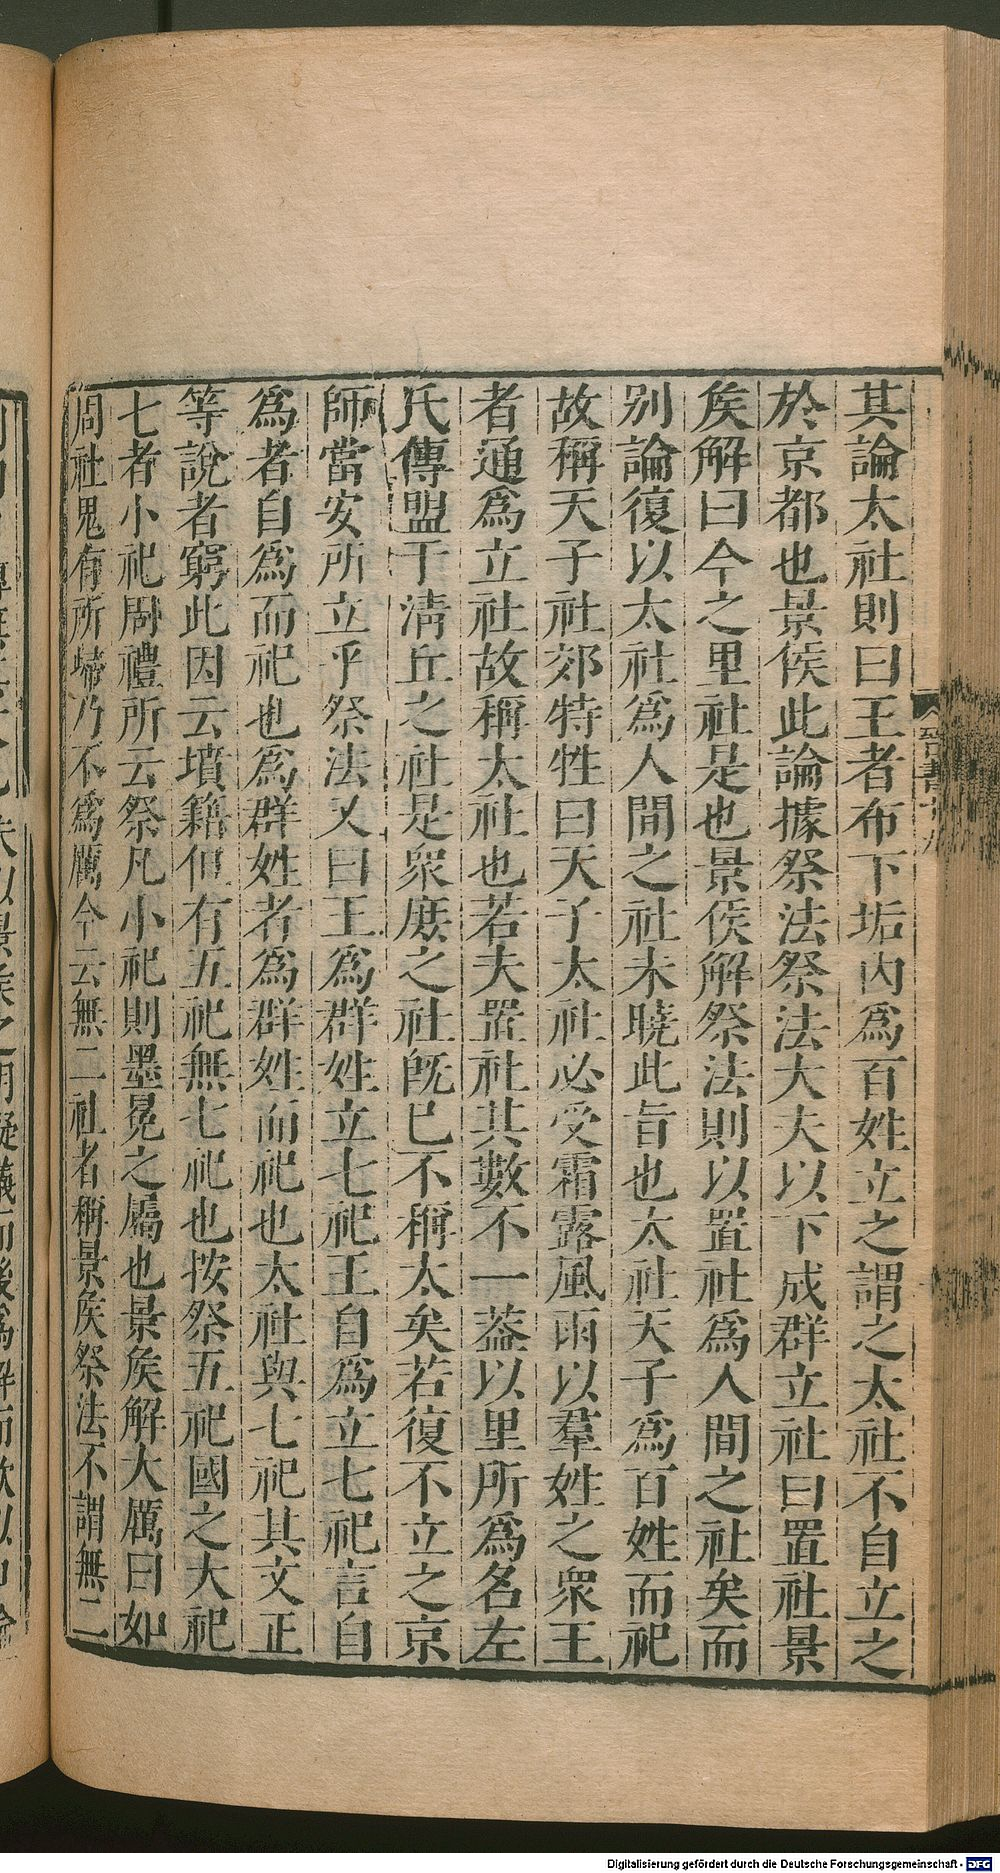 其論太社則曰王者布下垢內爲百姓立之謂之太社不自立之
於京都也景侯此論據祭法祭法大夫以下成群立社曰置社景
矦解曰今之里社是也景侯解祭法則以置社爲人間之社矣而
别論復以太社爲人間之社未曉此旨也太社天子爲百姓而祀
故稱天子社郊特牲曰天子太社必受霜露風雨以羣姓之衆王
者通爲立社故稱太社也若夫置社其數不一葢以里所爲名左
氏傳盟于淸丘之社是衆庶之社旣已不稱太矣若復不立之京
師當安所立乎祭法又曰王爲群姓立七祀王自爲立七祀言自
爲者自爲而祀也爲群姓者爲群姓而祀也太社與七祀其文正
等說者窮此因云墳籍但有五祀無七祀也按祭五祀國之大祀
七者小祀周禮所云祭凡小祀則墨冕之屬也景矦解大厲曰如
周社鬼有所歸乃不爲厲今云無二社者稱景矦祭法不謂無二
晉書十九
Digitalisierung gefördert durch die Deutsche Forschungsgemeinschaft - DFG